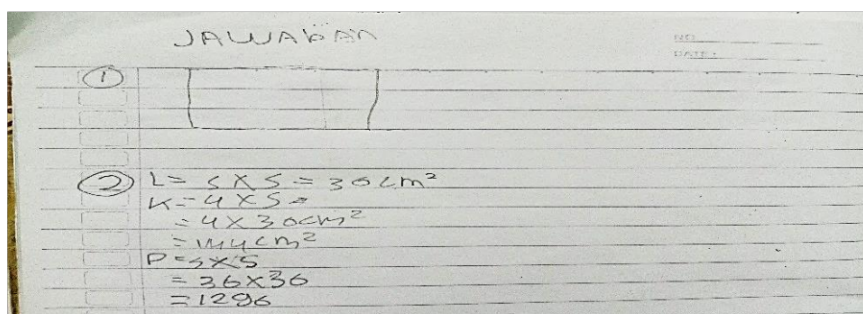 JAWAbAN
NO
DATE:
1
2 L = s x s = 36 cm²
K = 4 x s =
= 4 x 36 cm²
= 144 cm²
P = s x s
= 36 x 36
= 1296